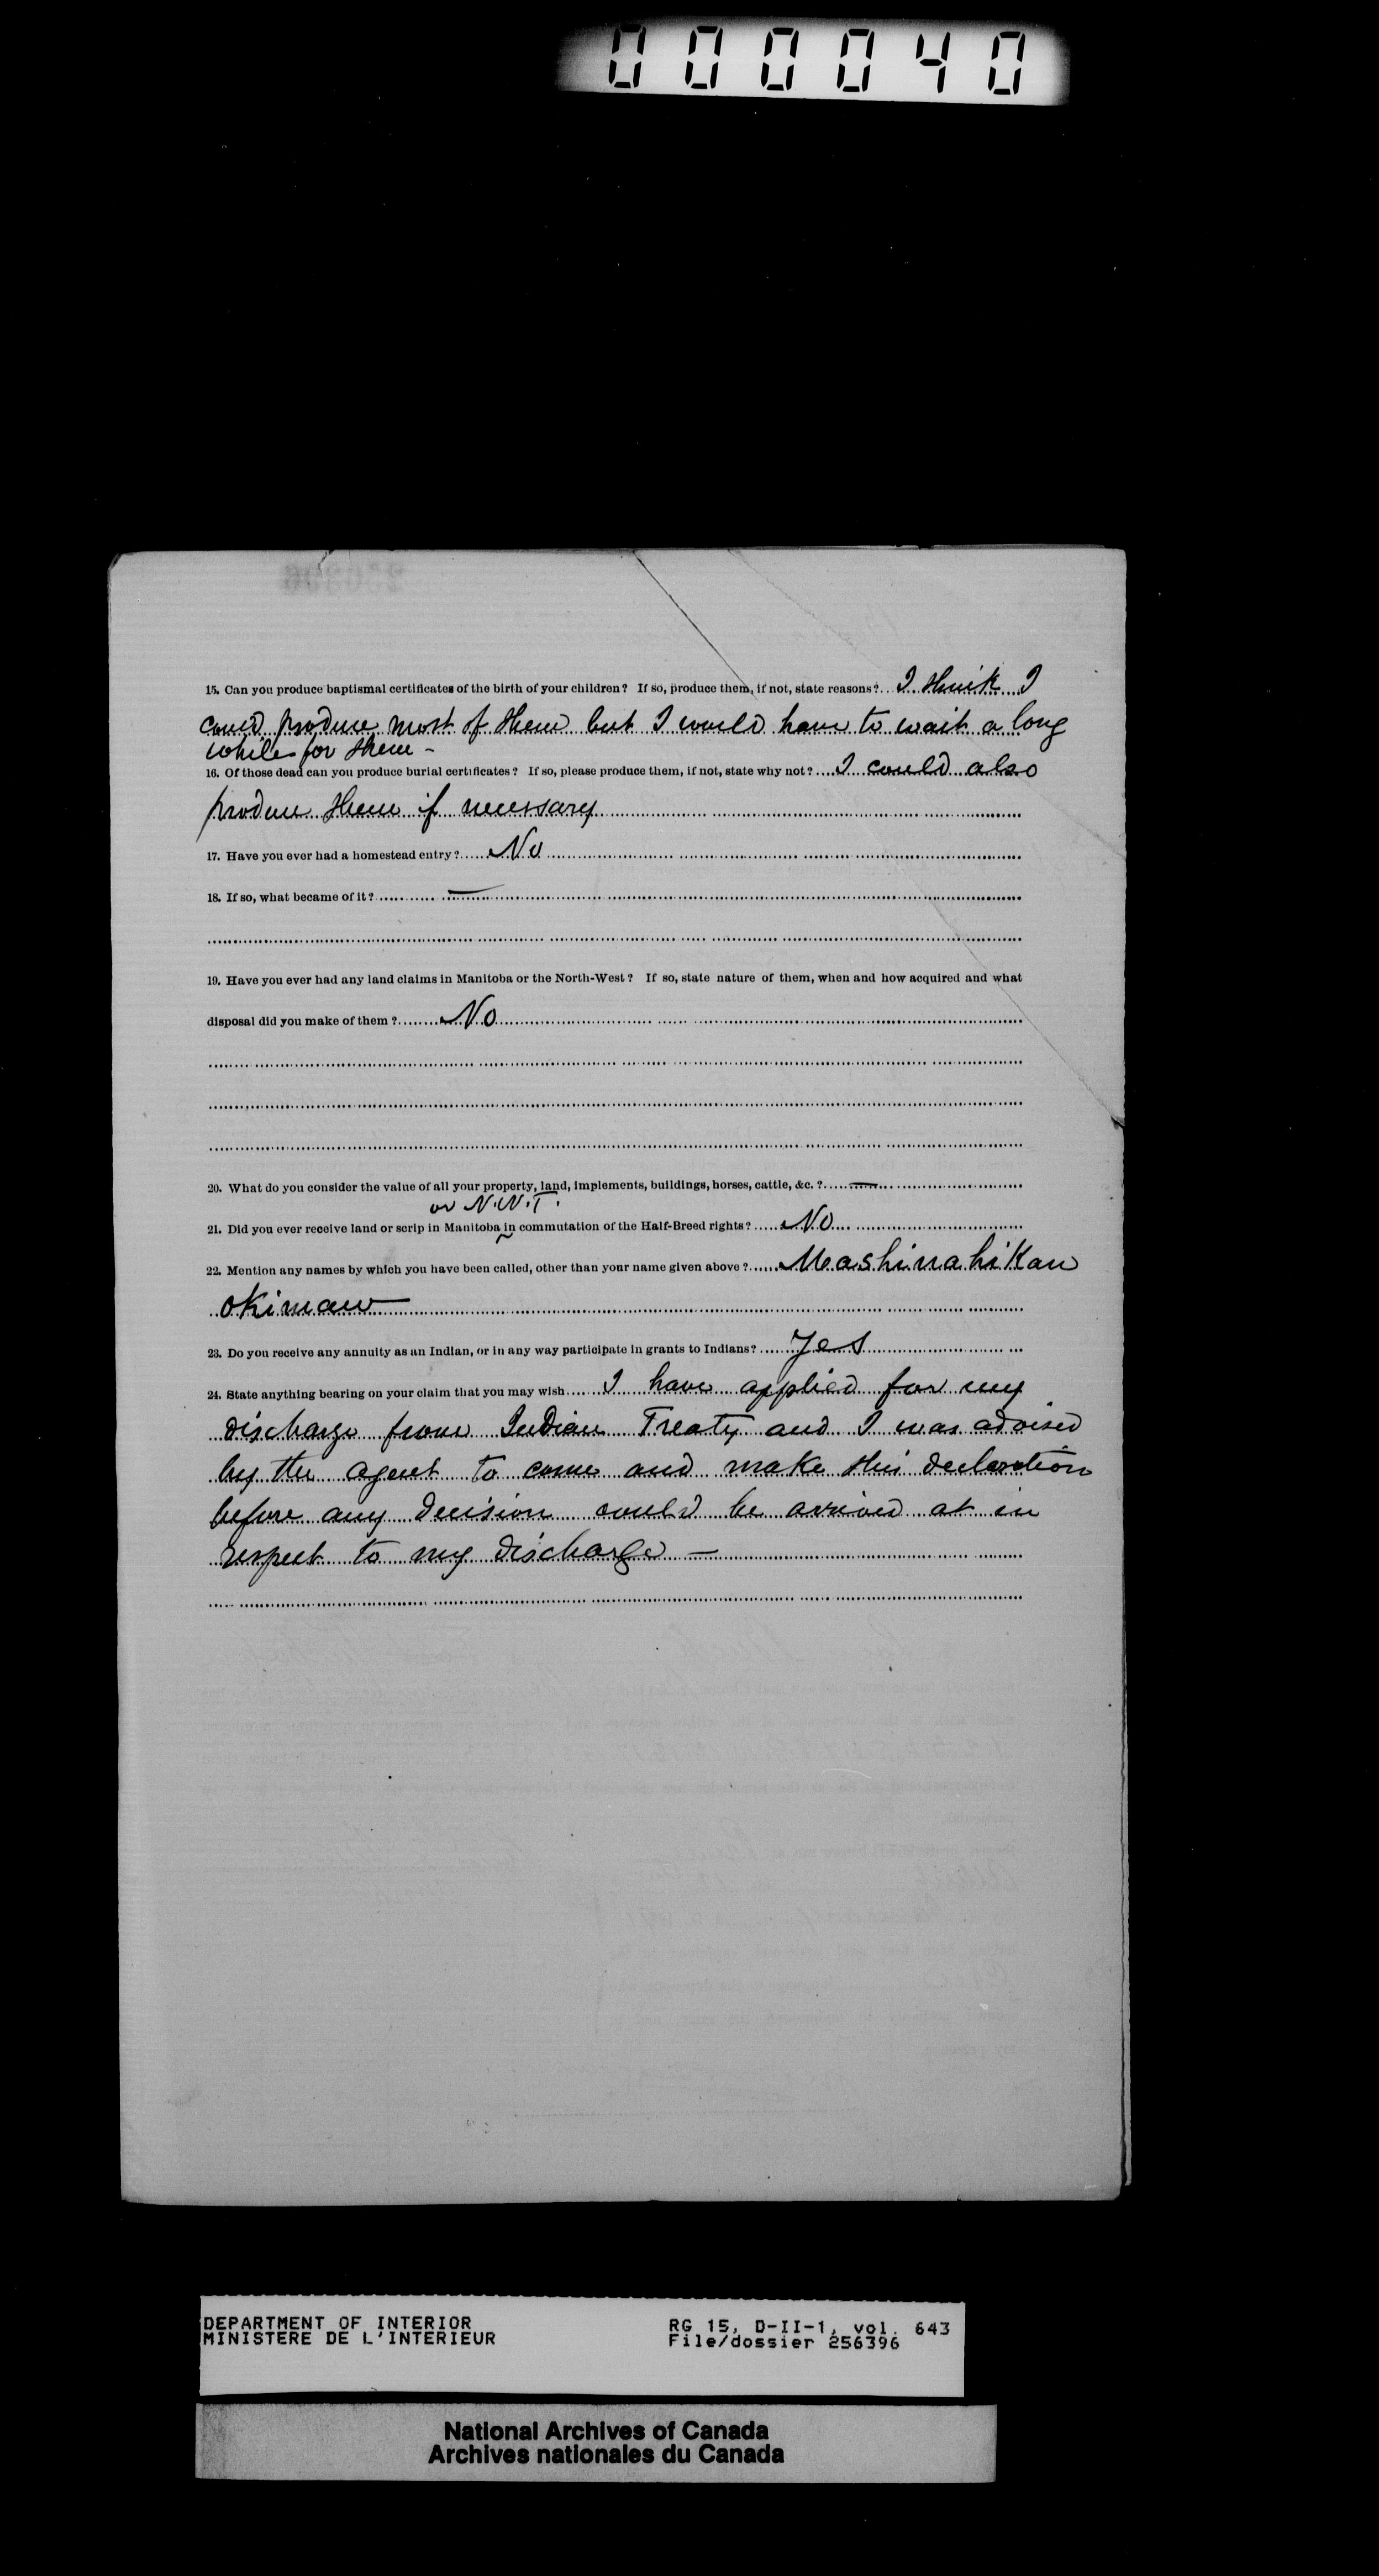 000040
15. Can you produce baptismal certificates of the birth of your children? If so, produce them, if not, state reasons? I think I
could produce most of them but I would have to wait a long
while for them -
16. Of those dead can you produce burial certificates? If so, please produce them, if not, state why not? I could also
produce them if necessary
17. Have you ever had a homestead entry? No
18. If so, what became of it? —
19. Have you ever had any land claims in Manitoba or the North-West? If so, state nature of them, when and how acquired and what
disposal did you make of them? No
20. What do you consider the value of all your property, land, implements, buildings, horses, cattle, &c.? —
or N.W.T.
21. Did you ever receive land or scrip in Manitoba in commutation of the Half-Breed rights? No
22. Mention any names by which you have been called, other than your name given above? Mashinahikan
okimaw
23. Do you receive any annuity as an Indian, or in any way participate in grants to Indians? Yes
24. State anything bearing on your claim that you may wish I have applied for my
discharge from Indian Treaty and I was advised
by the agent to come and make this declaration
before any decision could be arrived at in
respect to my discharge —
DEPARTMENT OF INTERIOR
MINISTERE DE L'INTERIEUR
RG 15, D-II-1, vol. 643
File/dossier 256396
National Archives of Canada
Archives nationales du Canada